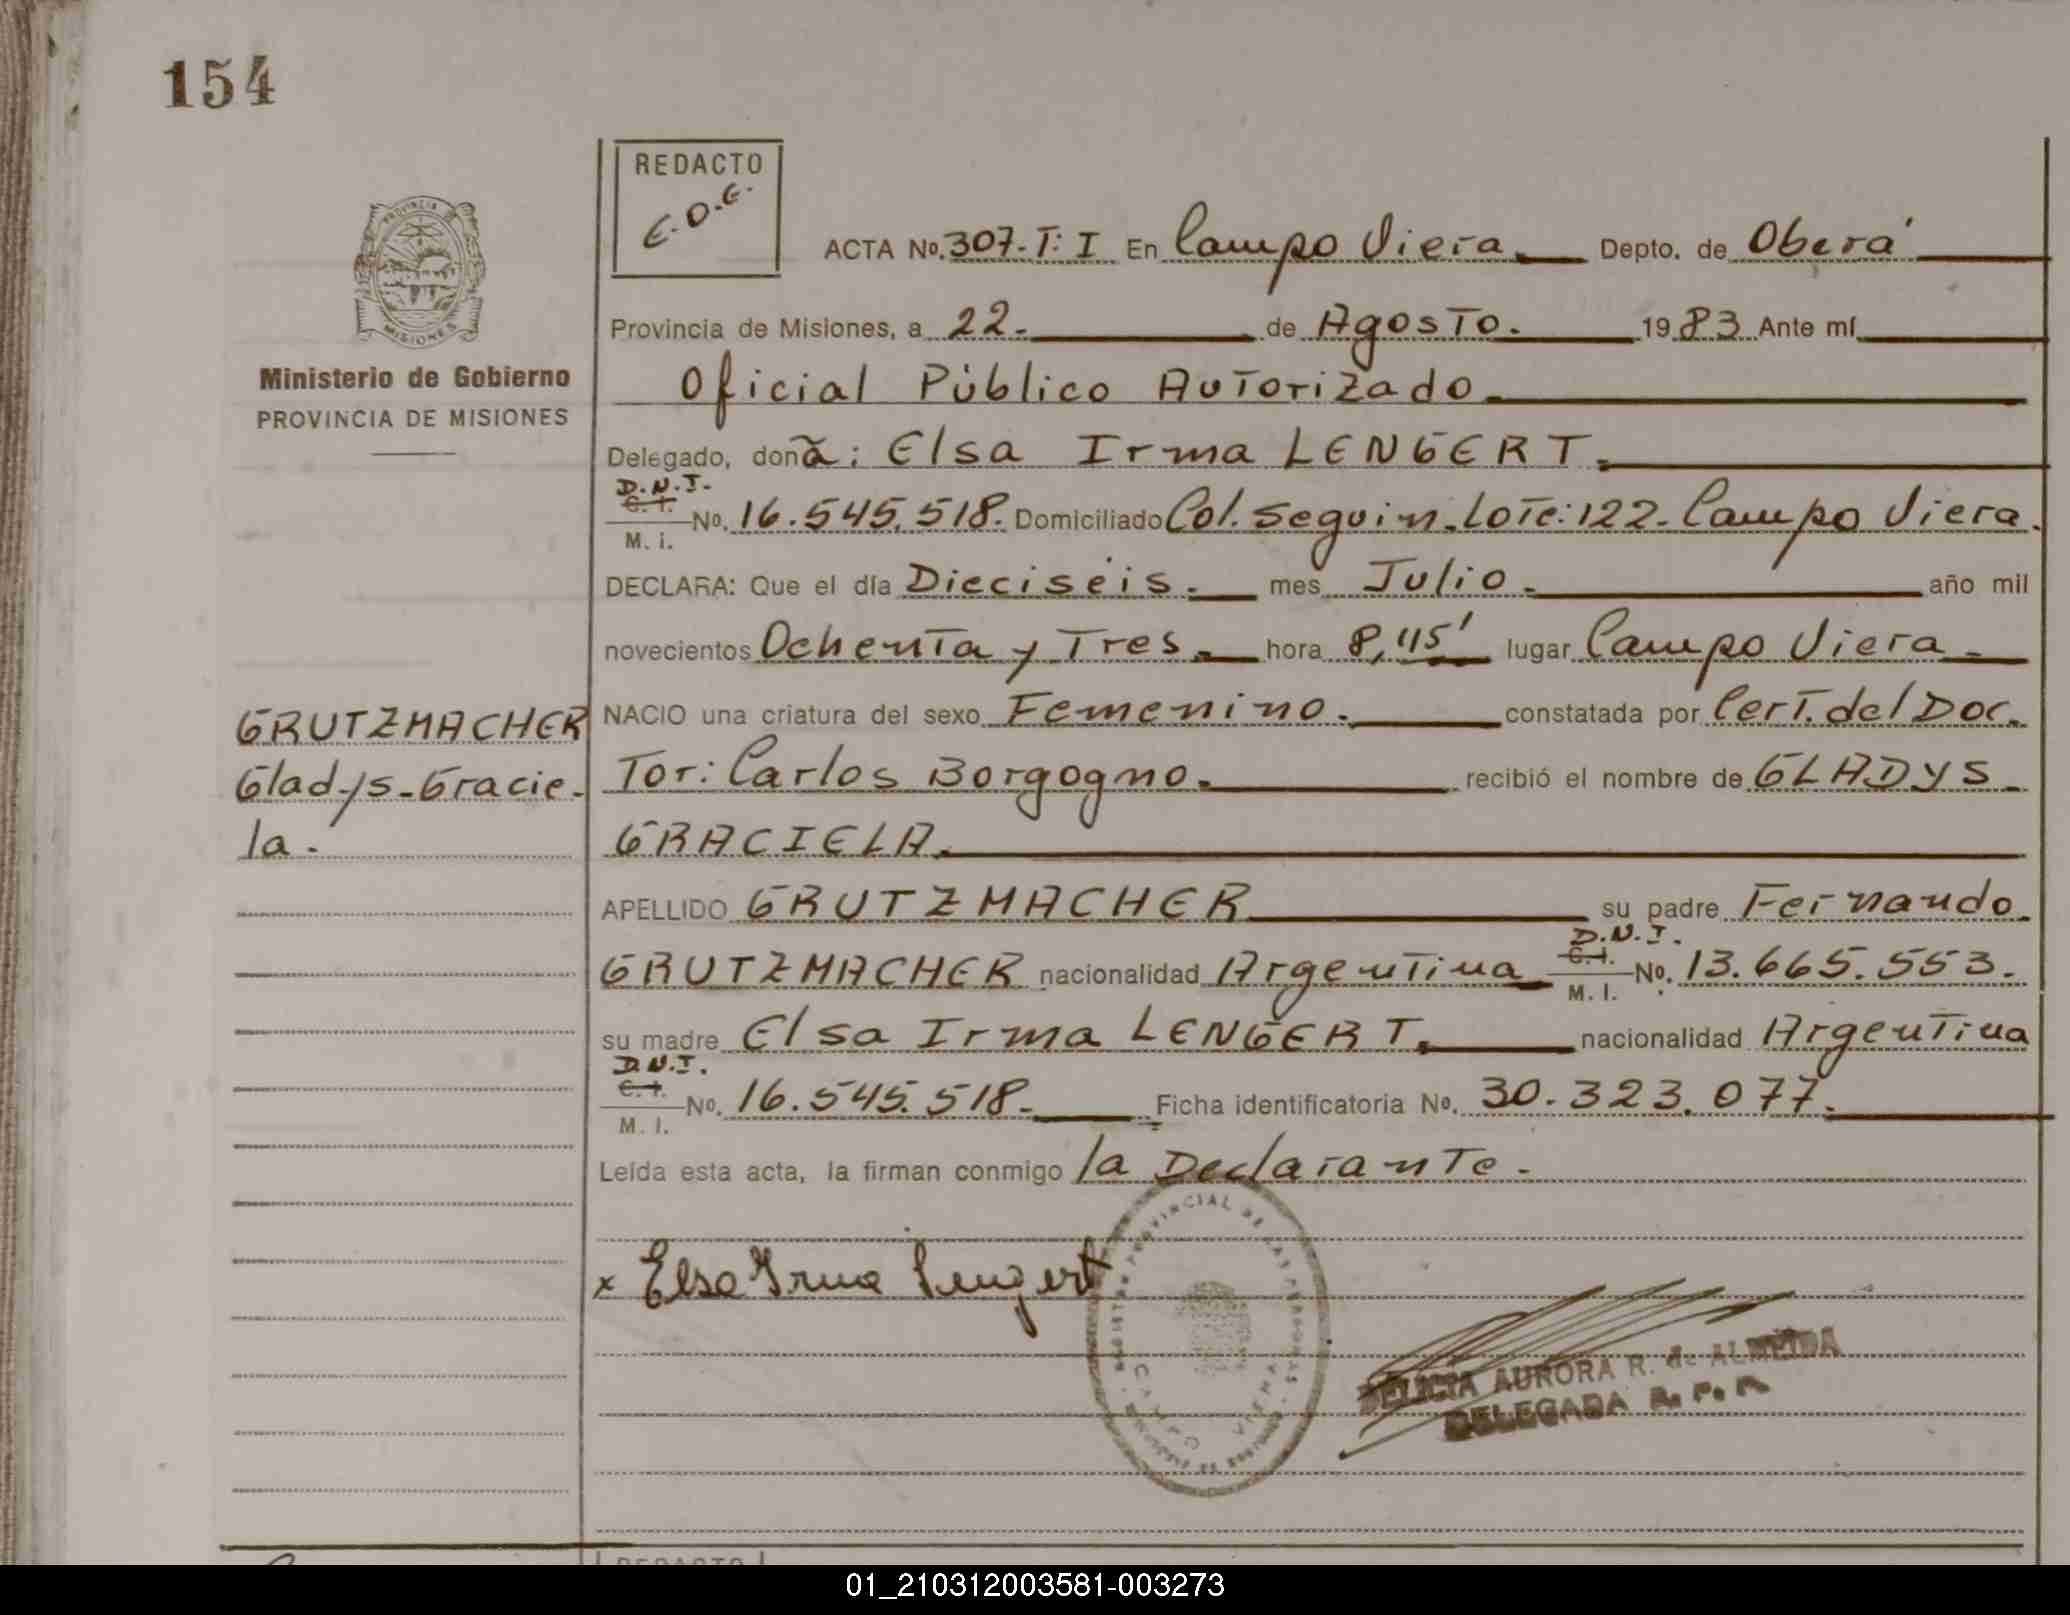 154
REDACTO
E.O.E.
PROVINCIA DE
MISIONES
Ministerio de Gobierno
PROVINCIA DE MISIONES
ACTA No. 307-T: I En Campo Viera. Depto. de Oberá
Provincia de Misiones, a 22. de Agosto. 1983 Ante mí
Oficial Público Autorizado.
Delegado, doña: Elsa Irma LENGERT.
D.N.I.
C. I.
M. i. No. 16.545.518. Domiciliado Col. Seguin. Lote: 122. Campo Viera.
DECLARA: Que el día Dieciséis. mes Julio. año mil
novecientos Ochenta y Tres. hora 8,45' lugar Campo Viera.
GRUTZMACHER
Gladys-Gracie-
la.
NACIO una criatura del sexo Femenino. constatada por Cert. del Doc.
Tor: Carlos Borgogno. recibió el nombre de GLADYS
GRACIELA.
APELLIDO GRUTZMACHER su padre Fernando
GRUTZMACHER nacionalidad Argentina D.N.I. C. I. M. I. No. 13.665.553.
su madre Elsa Irma LENGERT. nacionalidad Argentina
D.N.I.
C. I.
M. I. No. 16.545.518. Ficha identificatoria No. 30.323.077.
Leída esta acta, la firman conmigo la Declarante.
x Elsa Irma Lengert
PROVINCIAL DE LAS PERSONAS
CAMPO VIERA
FELICIA AURORA R. de ALMEIDA
DELEGADA R. P. P.
REDACTO
01_210312003581-003273